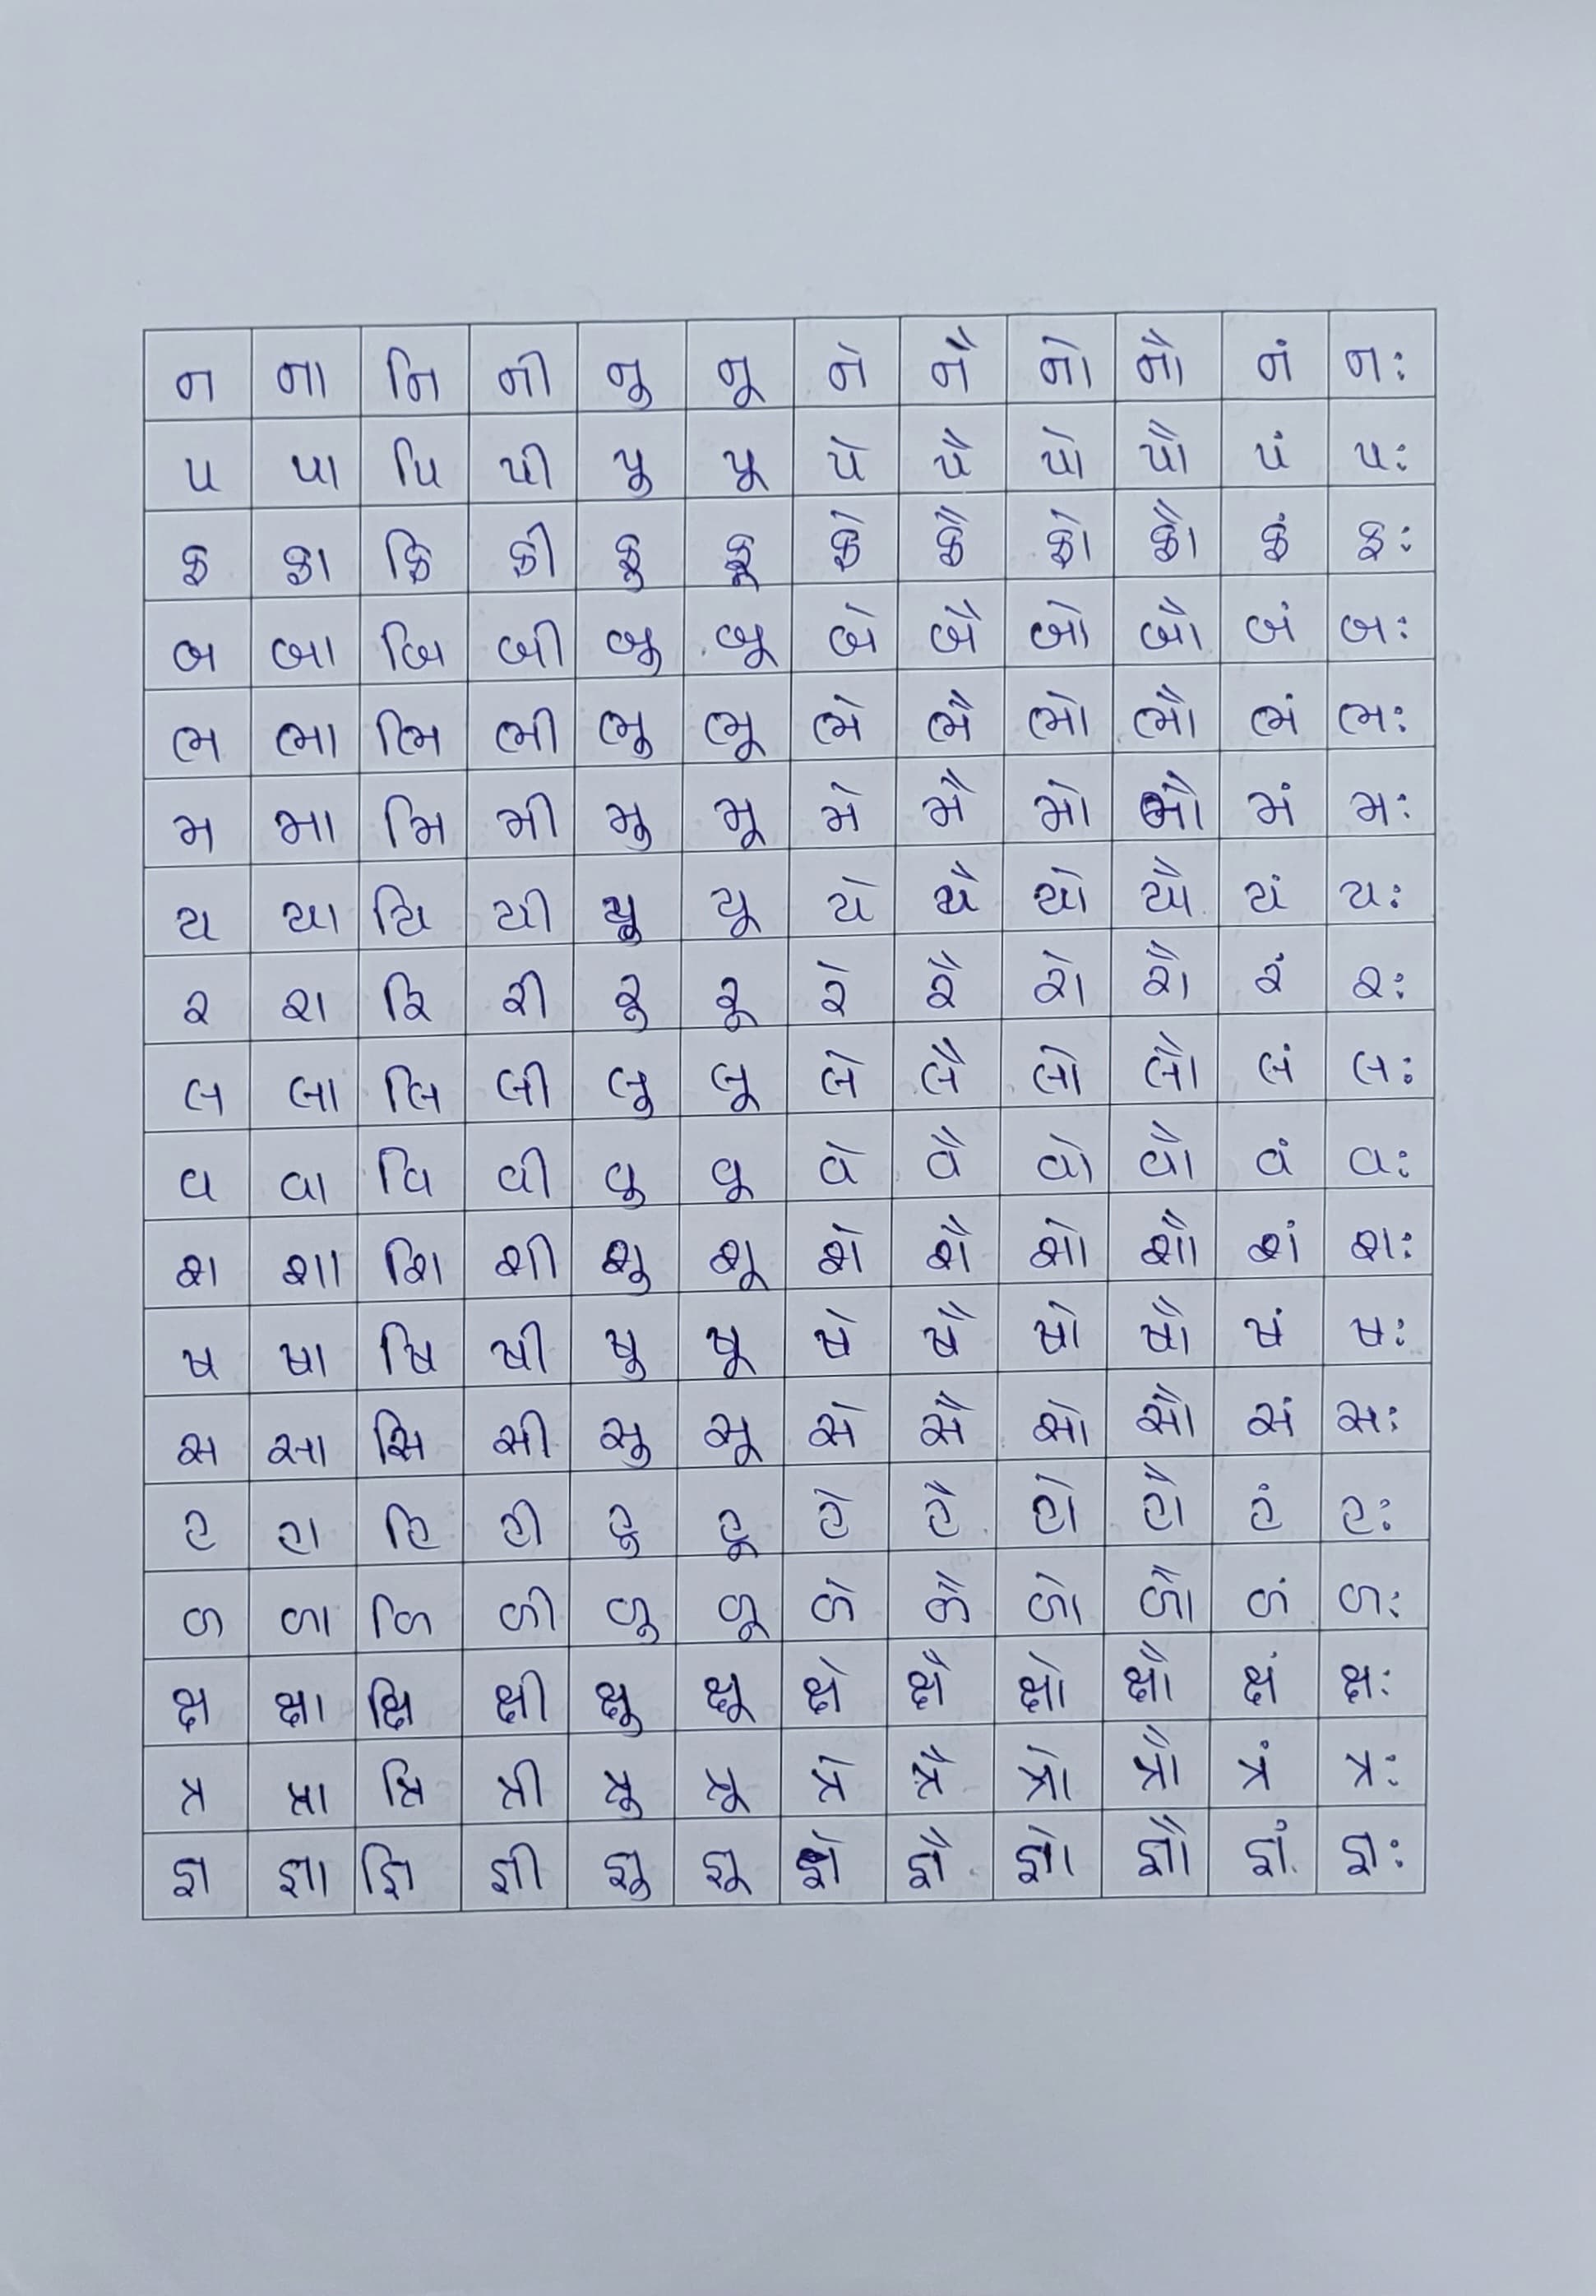 ન ના નિ ની નુ નૂ ને નૈ નો નૌ નં નઃ
પ પા પિ પી પુ પૂ પે પૈ પો પૌ પં પઃ
ફ ફા ફિ ફી ફુ ફૂ ફે ફૈ ફો ફૌ ફં ફઃ
બ બા બિ બી બુ બૂ બે બૈ બો બૌ બં બઃ
ભ ભા ભિ ભી ભુ ભૂ ભે ભૈ ભો ભૌ ભં ભઃ
મ મા મિ મી મુ મૂ મે મૈ મો મૌ મં મઃ
ય યા યિ યી યુ યૂ યે યૈ યો યૌ યં યઃ
ર રા રિ રી રુ રૂ રે રૈ રો રૌ રં રઃ
લ લા લિ લી લુ લૂ લે લૈ લો લૌ લં લઃ
વ વા વિ વી વુ વૂ વે વૈ વો વૌ વં વઃ
શ શા શિ શી શુ શૂ શે શૈ શો શૌ શં શઃ
ષ ષા ષિ ષી ષુ ષૂ ષે ષૈ ષો ષૌ ષં ષઃ
સ સા સિ સી સુ સૂ સે સૈ સો સૌ સં સઃ
હ હા હિ હી હુ હૂ હે હૈ હો હૌ હં હઃ
ળ ળા ળિ ળી ળુ ળૂ ળે ળૈ ળો ળૌ ળં ળઃ
ક્ષ ક્ષા ક્ષિ ક્ષી ક્ષુ ક્ષૂ ક્ષે ક્ષૈ ક્ષો ક્ષૌ ક્ષં ક્ષઃ
ત્ર ત્રા ત્રિ ત્રી ત્રુ ત્રૂ ત્રે ત્રૈ ત્રો ત્રૌ ત્રં ત્રઃ
જ્ઞ જ્ઞા જ્ઞિ જ્ઞી જ્ઞુ જ્ઞૂ જ્ઞે જ્ઞૈ જ્ઞો જ્ઞૌ જ્ઞં જ્ઞઃ